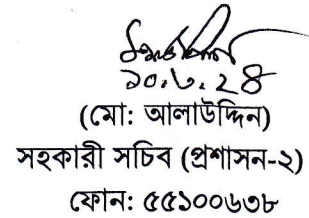 ১০.৬.২৪
(মো: আলাউদ্দিন)
সহকারী সচিব (প্রশাসন-২)
ফোন: ৫৫১০০৬৩৮